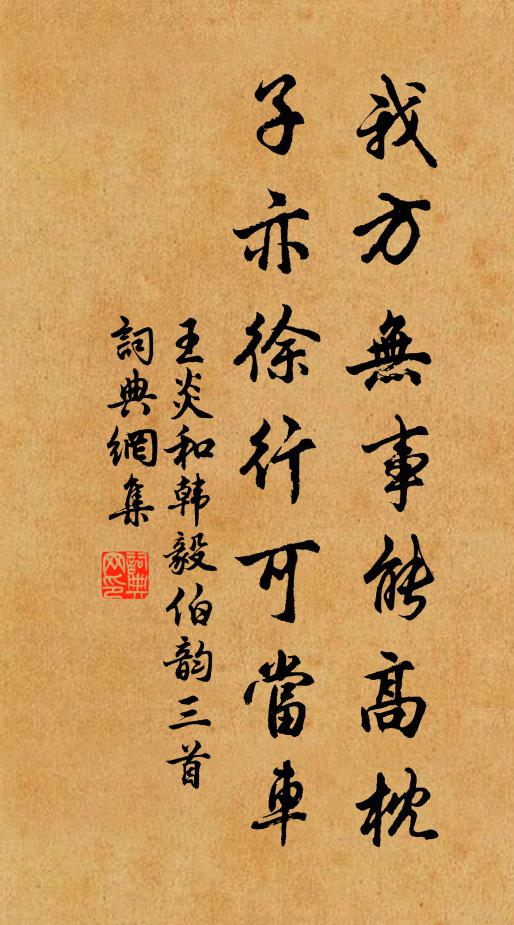 我方無事能高枕
子亦徐行可當車
王炎和韩毅伯韵三首
詞典網集
詞典網印